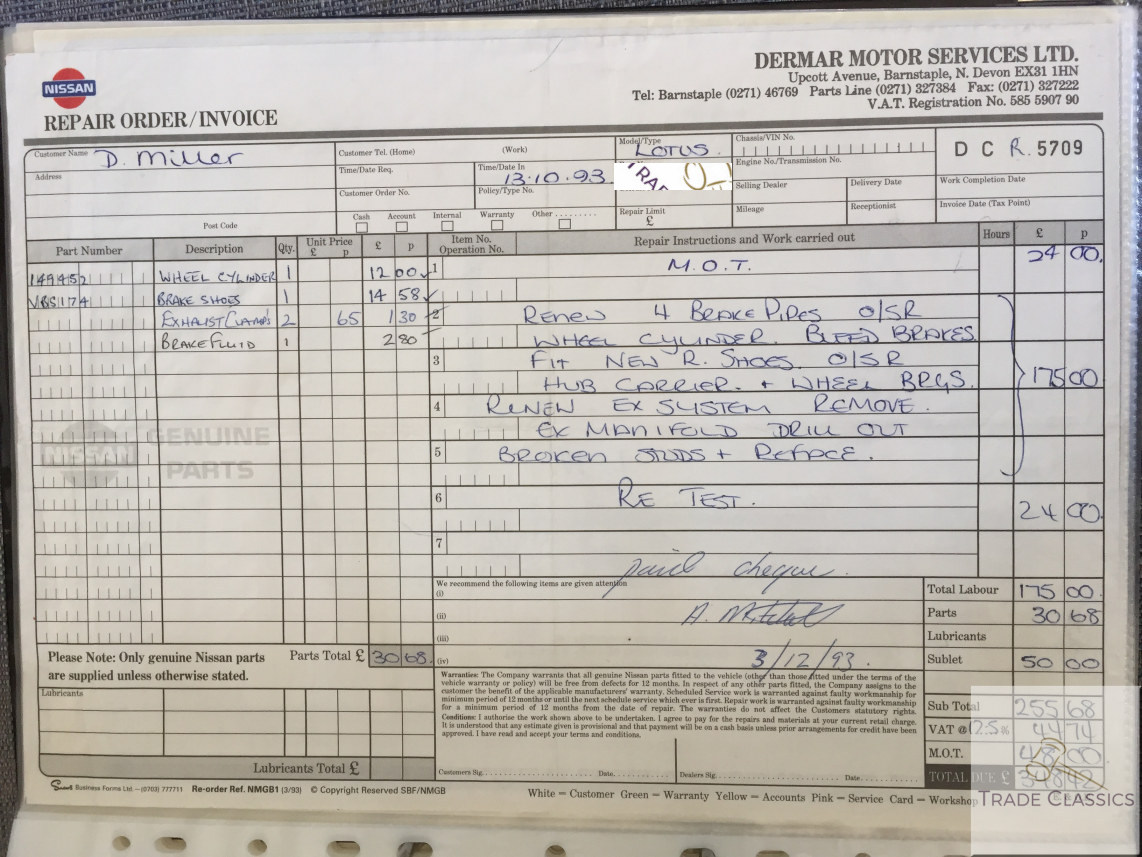 DERMAR MOTOR SERVICES LTD.
Upcott Avenue, Barnstaple, N. Devon EX31 1HN
Tel: Barnstaple (0271) 46769 Parts Line (0271) 327384 Fax: (0271) 327222
V.A.T. Registration No. 585 5907 90
NISSAN
REPAIR ORDER/INVOICE
Customer Name D. Miller
Address
Post Code
Customer Tel. (Home) (Work)
Time/Date Req.
Time/Date In 13.10.93
Customer Order No.
Policy/Type No.
Cash Account Internal Warranty Other ........
Model/Type LOTUS
TRAD
Repair Limit £
Chassis/VIN No.
Engine No./Transmission No.
Selling Dealer
Delivery Date
Mileage
Receptionist
D C R. 5709
Work Completion Date
Invoice Date (Tax Point)
Part Number Description Qty. Unit Price £ p £ p
149452 WHEEL CYLINDER 1 12 00
VBS1174 BRAKE SHOES 1 14 58
EXHAUST CLAMPS 2 65 1 30
BRAKE FLUID 1 2 80
GENUINE
NISSAN
PARTS
Item No. Operation No. Repair Instructions and Work carried out Hours £ p
1 M.O.T. 24 00
2 RENEW 4 BRAKE PIPES O/SR
WHEEL CYLINDER. BLEED BRAKES
3 FIT NEW R. SHOES. O/SR
HUB CARRIER. + WHEEL BRGS. 175 00
4 RENEW EX SYSTEM REMOVE.
EX MANIFOLD DRILL OUT
5 BROKEN STUDS + REFACE.
6 RE TEST. 24 00
7
paid cheque.
We recommend the following items are given attention
(i)
(ii)
(iii)
(iv) 3/12/93.
Total Labour 175 00
Parts 30 68
Lubricants
Sublet 50 00
Sub Total 255 68
VAT @ 17.5% 44 74
M.O.T. 48 00
TOTAL DUE £ 348 42
Please Note: Only genuine Nissan parts
are supplied unless otherwise stated.
Parts Total £ 30 68
Lubricants
Lubricants Total £
Warranty: The Company warrants that all genuine Nissan parts fitted to the vehicle (other than those fitted under the terms of the
vehicle warranty or policy) will be free from defects for 12 months. In respect of any other parts fitted, the Company assigns to the
customer the benefit of the applicable manufacturers' warranty. Scheduled Service work is warranted against faulty workmanship for
minimum period of 12 months or until the next schedule service which ever is first. Repair work is warranted against faulty workmanship
for a minimum period of 12 months from the date of repair. The warranties do not affect the Customers statutory rights.
Conditions: I authorise the work shown above to be undertaken. I agree to pay for the repairs and materials at your current retail charge.
It is understood that any estimate given is provisional and that payment will be on cash basis unless prior arrangements for credit have been
approved. I have read and accept your terms and conditions.
Customers Sig. Date Dealers Sig. Date
Business Forms Ltd. — (0703) 777711 Re-order Ref. NMGB1 (3/93) © Copyright Reserved SBF/NMGB
White — Customer Green — Warranty Yellow — Accounts Pink — Service Card — Workshop
TRADE CLASSICS